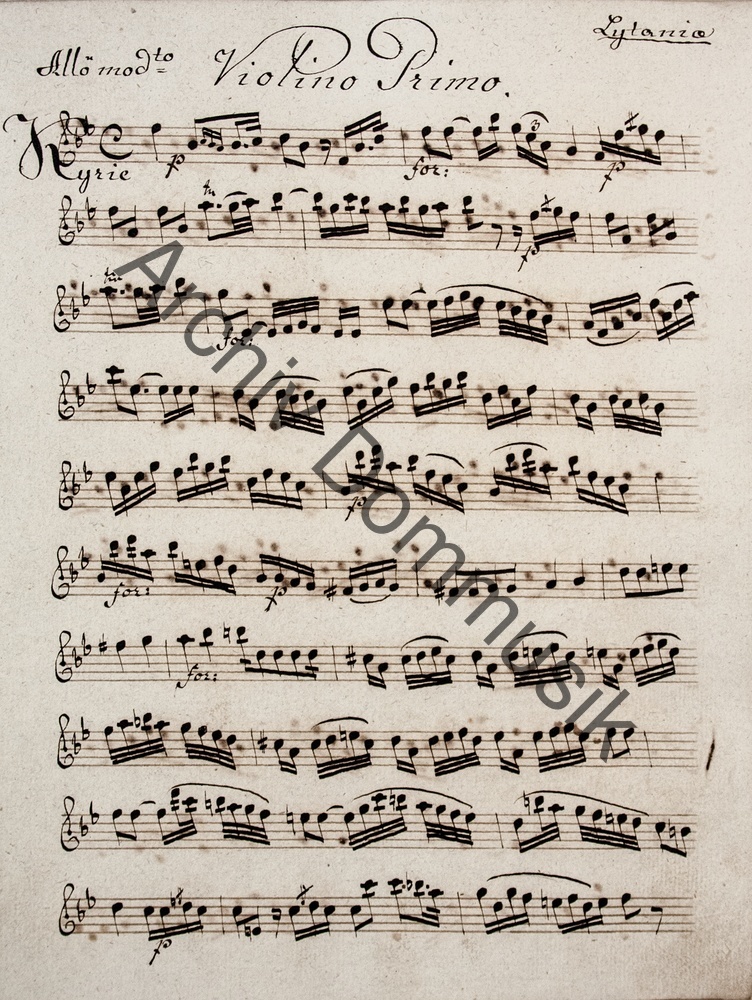 Lytaniæ
Allö modto Violino Primo.
Kyrie p for: p
tr p
tr for:
p
for: p
for:
p
Archiv Dommusik